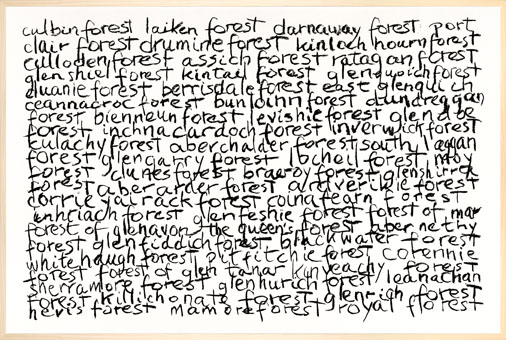 culbin forest laiken forest darnaway forest port
clair forest drumine forest kinloch hourn forest
culloden forest assich forest ratagan forest
glenshiel forest kintail forest forest
cluanie forest berrisdale forest east glenquich
ceannacroc forest forest dundreggan
forest bienneun forest levishie forest
forest inchnacardoch forest inverwick forest
culachy forest aberchalder forest south laggan
forest glengarry forest locheil forest moy
forest clunes forest braeroy forest
forest aberarder forest ardverikie forest
corrieyairack forest forest
inhriach forest glenfeshie forest forest of mar
forest of glenavon the queens forest abernethy
forest glenfiddich forest blackwater forest
whitehaugh forest pitfitchie forest corennie
forest forest of glen tanar forest
sherramore forest glenhurich forest leanachan
forest forest forest
nevis forest mamore forest royal forest